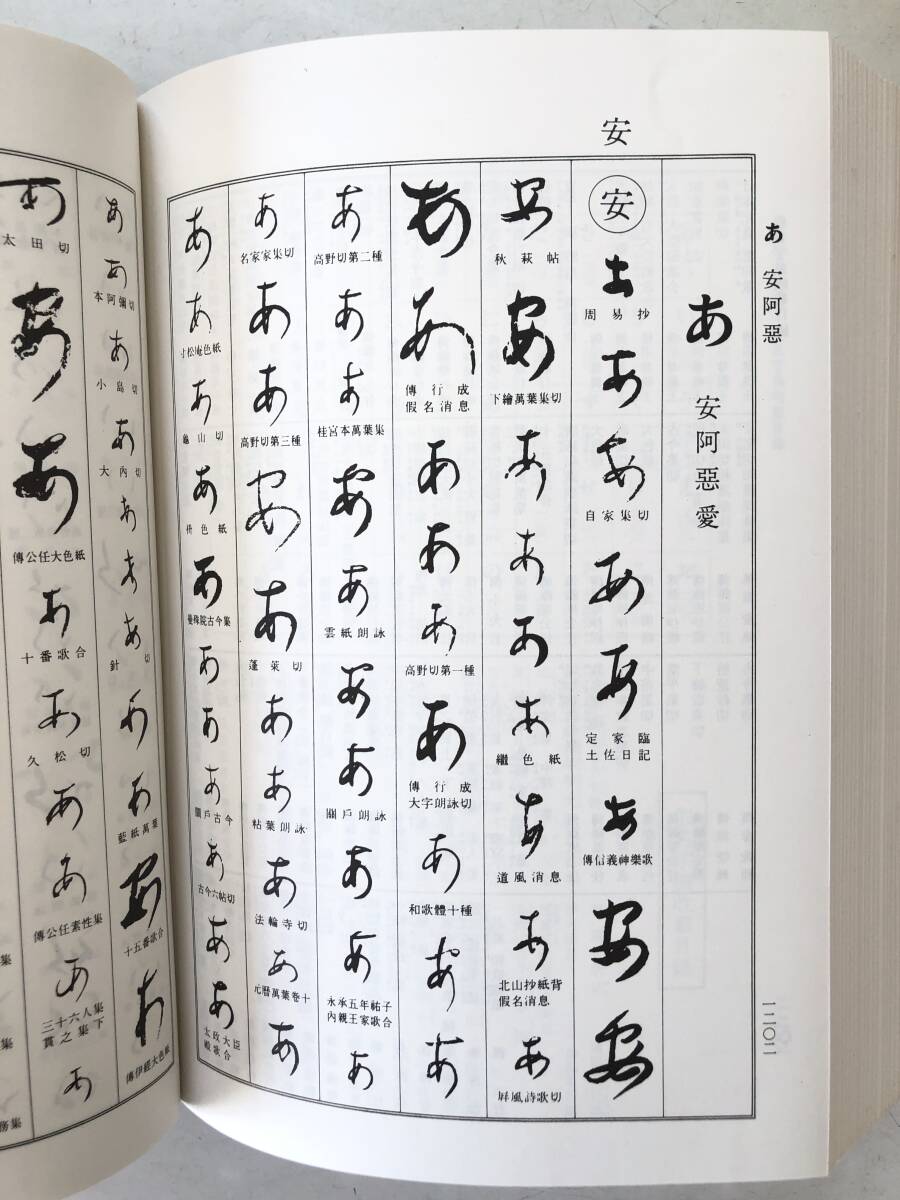 安
あ 安阿惡
一二〇二
あ 安阿惡愛
安
周易抄
自家集切
定家臨
土佐日記
傳信義神樂歌
秋萩帖
下繪萬葉集切
繼色紙
道風消息
北山抄紙背
假名消息
屏風詩歌切
傳行成
假名消息
高野切第一種
傳行成
大字朗詠切
和歌體十種
高野切第二種
桂宮本萬葉集
雲紙朗詠
關戶朗詠
永承五年祐子
內親王家歌合
名家家集切
高野切第三種
蓬萊切
粘葉朗詠
法輪寺切
元曆萬葉卷十
寸松庵色紙
龜山切
升色紙
曼殊院古今集
關戶古今
古今六帖切
太政大臣
殿歌合
本阿彌切
小島切
大內切
針切
藍紙萬葉
十五番歌合
傳伊經大色紙
太田切
傳公任大色紙
十番歌合
久松切
傳公任素性集
三十六人集
貫之集下
集
集